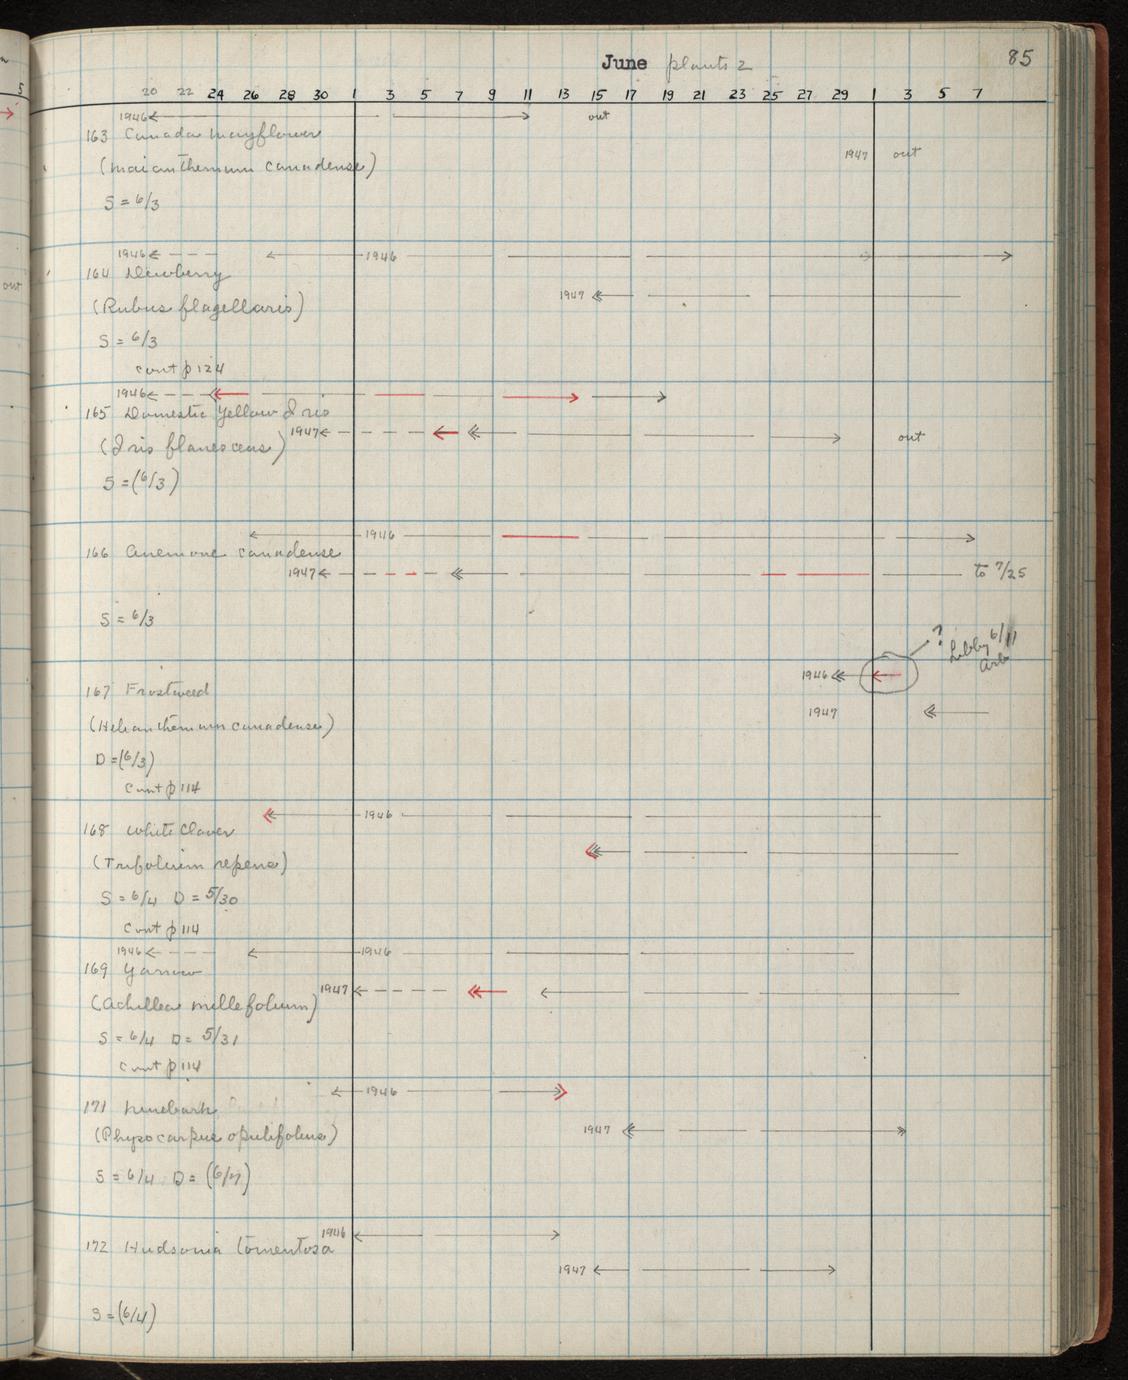 June plants 2
85
20 22 24 26 28 30 1 3 5 7 9 11 13 15 17 19 21 23 25 27 29 1 3 5 7
1946 out
163 Canada mayflower
1947 out
(Maianthemum canadense)
S = 6/3
1946 1946
164 Dewberry
1947
(Rubus flagellaris)
S = 6/3
cont p 124
1946
165 Domestic Yellow Iris
1947 out
(Iris flavescens)
S = (6/3)
1946
166 Anemone canadense
1947 to 7/25
S = 6/3
? Libby 6/11
Arb
1946
167 Frostweed
1947
(Helianthemum canadense)
D = (6/3)
Cont p 114
1946
168 White Clover
(Trifolium repens)
S = 6/4 D = 5/30
Cont p 114
1946 1946
169 Yarrow
1947
(Achillea millefolium)
S = 6/4 D = 5/31
Cont p 114
1946
171 Ninebark
1947
(Physocarpus opulifolius)
S = 6/4 D = (6/7)
1946
172 Hudsonia tomentosa
1947
S = (6/4)
5
out